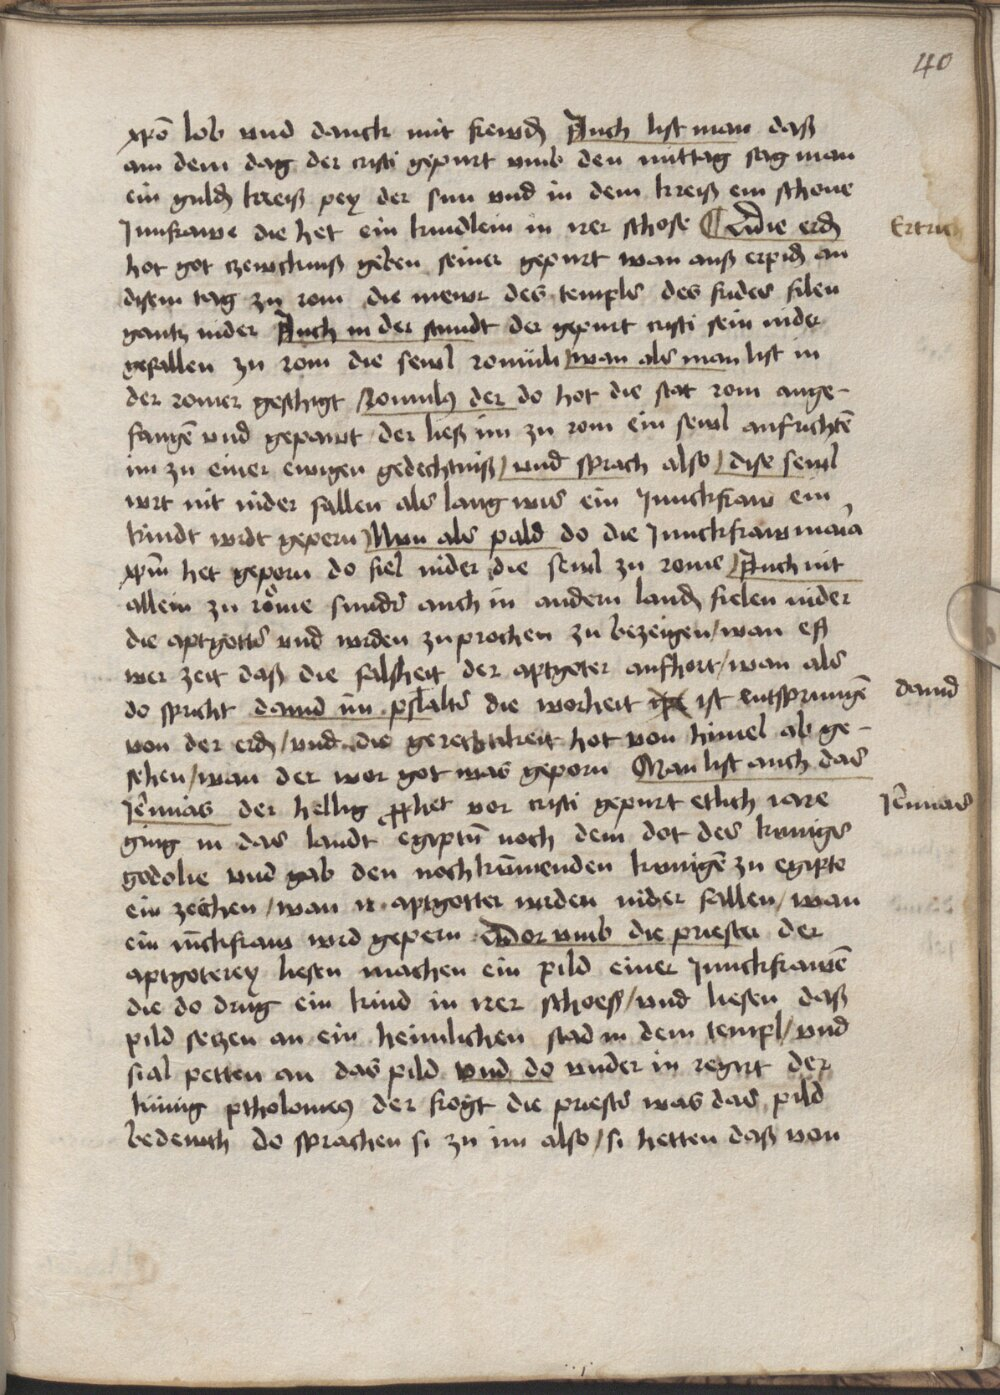 40
xpo͂ lob vnd danck mit frewdꝫ Auch list man daß
am dem dag der cristi gepurt vmb den mittag sag man
ein guldꝫ kreiß pey der sun vnd in dem kreiß ein schone
Junkfrawe die het ein kindlein in irer schose ¶ Die erdꝫ
Ertrich
hot got czewcknuß geben seiner gepurt wan auß erpidꝫ an
disem tag zu rom die mewr des tempels des frides filen
gantz nider Auch in der stundt der gepurt cristi sein nider
gefallen zu rom die sewl romuli / wan als man list in
der romer geschigt / Romulꝰ der do hot die stat rom ange-
fangē vnd gepawt der ließ im zu rom ein sewl aufrichtē
im zu einer ewigen gedechtniß / vnd sprach also / dise sewl
wrt nit nider fallen als lang wis ein Junckfraw ein
kindt wrdt gepern / Nvn als pald do die Junckfraw maria
xpm̄ het geporn do fiel nider die sewl zu rome / Auch nit
allein zu rome sunder auch in andern landꝫ fielen nider
die aptgotter vnd wrden zuprochen zu bezeigen / wan eß
wer zeit daß die falsheit der aptgoter aufhort / wan als
do spricht dauid im psalter die worheit ist entsprungē
dauid
von der erdꝫ / vnd die gerechtikeit hot von himel ab ge-
sehen / wan der wor got was geporn Man list auch das
Jeremias der hellig prophet vor cristi gepurt etlich iare
Jeremias
ging in das landt egiptū noch dem dot des kunigs
godolie vnd gab den nochkūmenden kunigē zu egipte
ein zeichen / wan ir aptgotter wrden nider fallen / wan
ein iūckfraw wrd gepern Dor vmb die priester der
aptgoterey liesen machen ein pild einer Junckfrawē
die do drug ein kind in irer schoeß / vnd liesen daß
pild seczen an ein heimlichen stad in dem templ / vnd
sial petten an das pild vnd do vnder in regirt der
kunig ptholomeꝰ der frogt die priester was das pild
bedewth do sprachen si zu im also / si hetten daß von